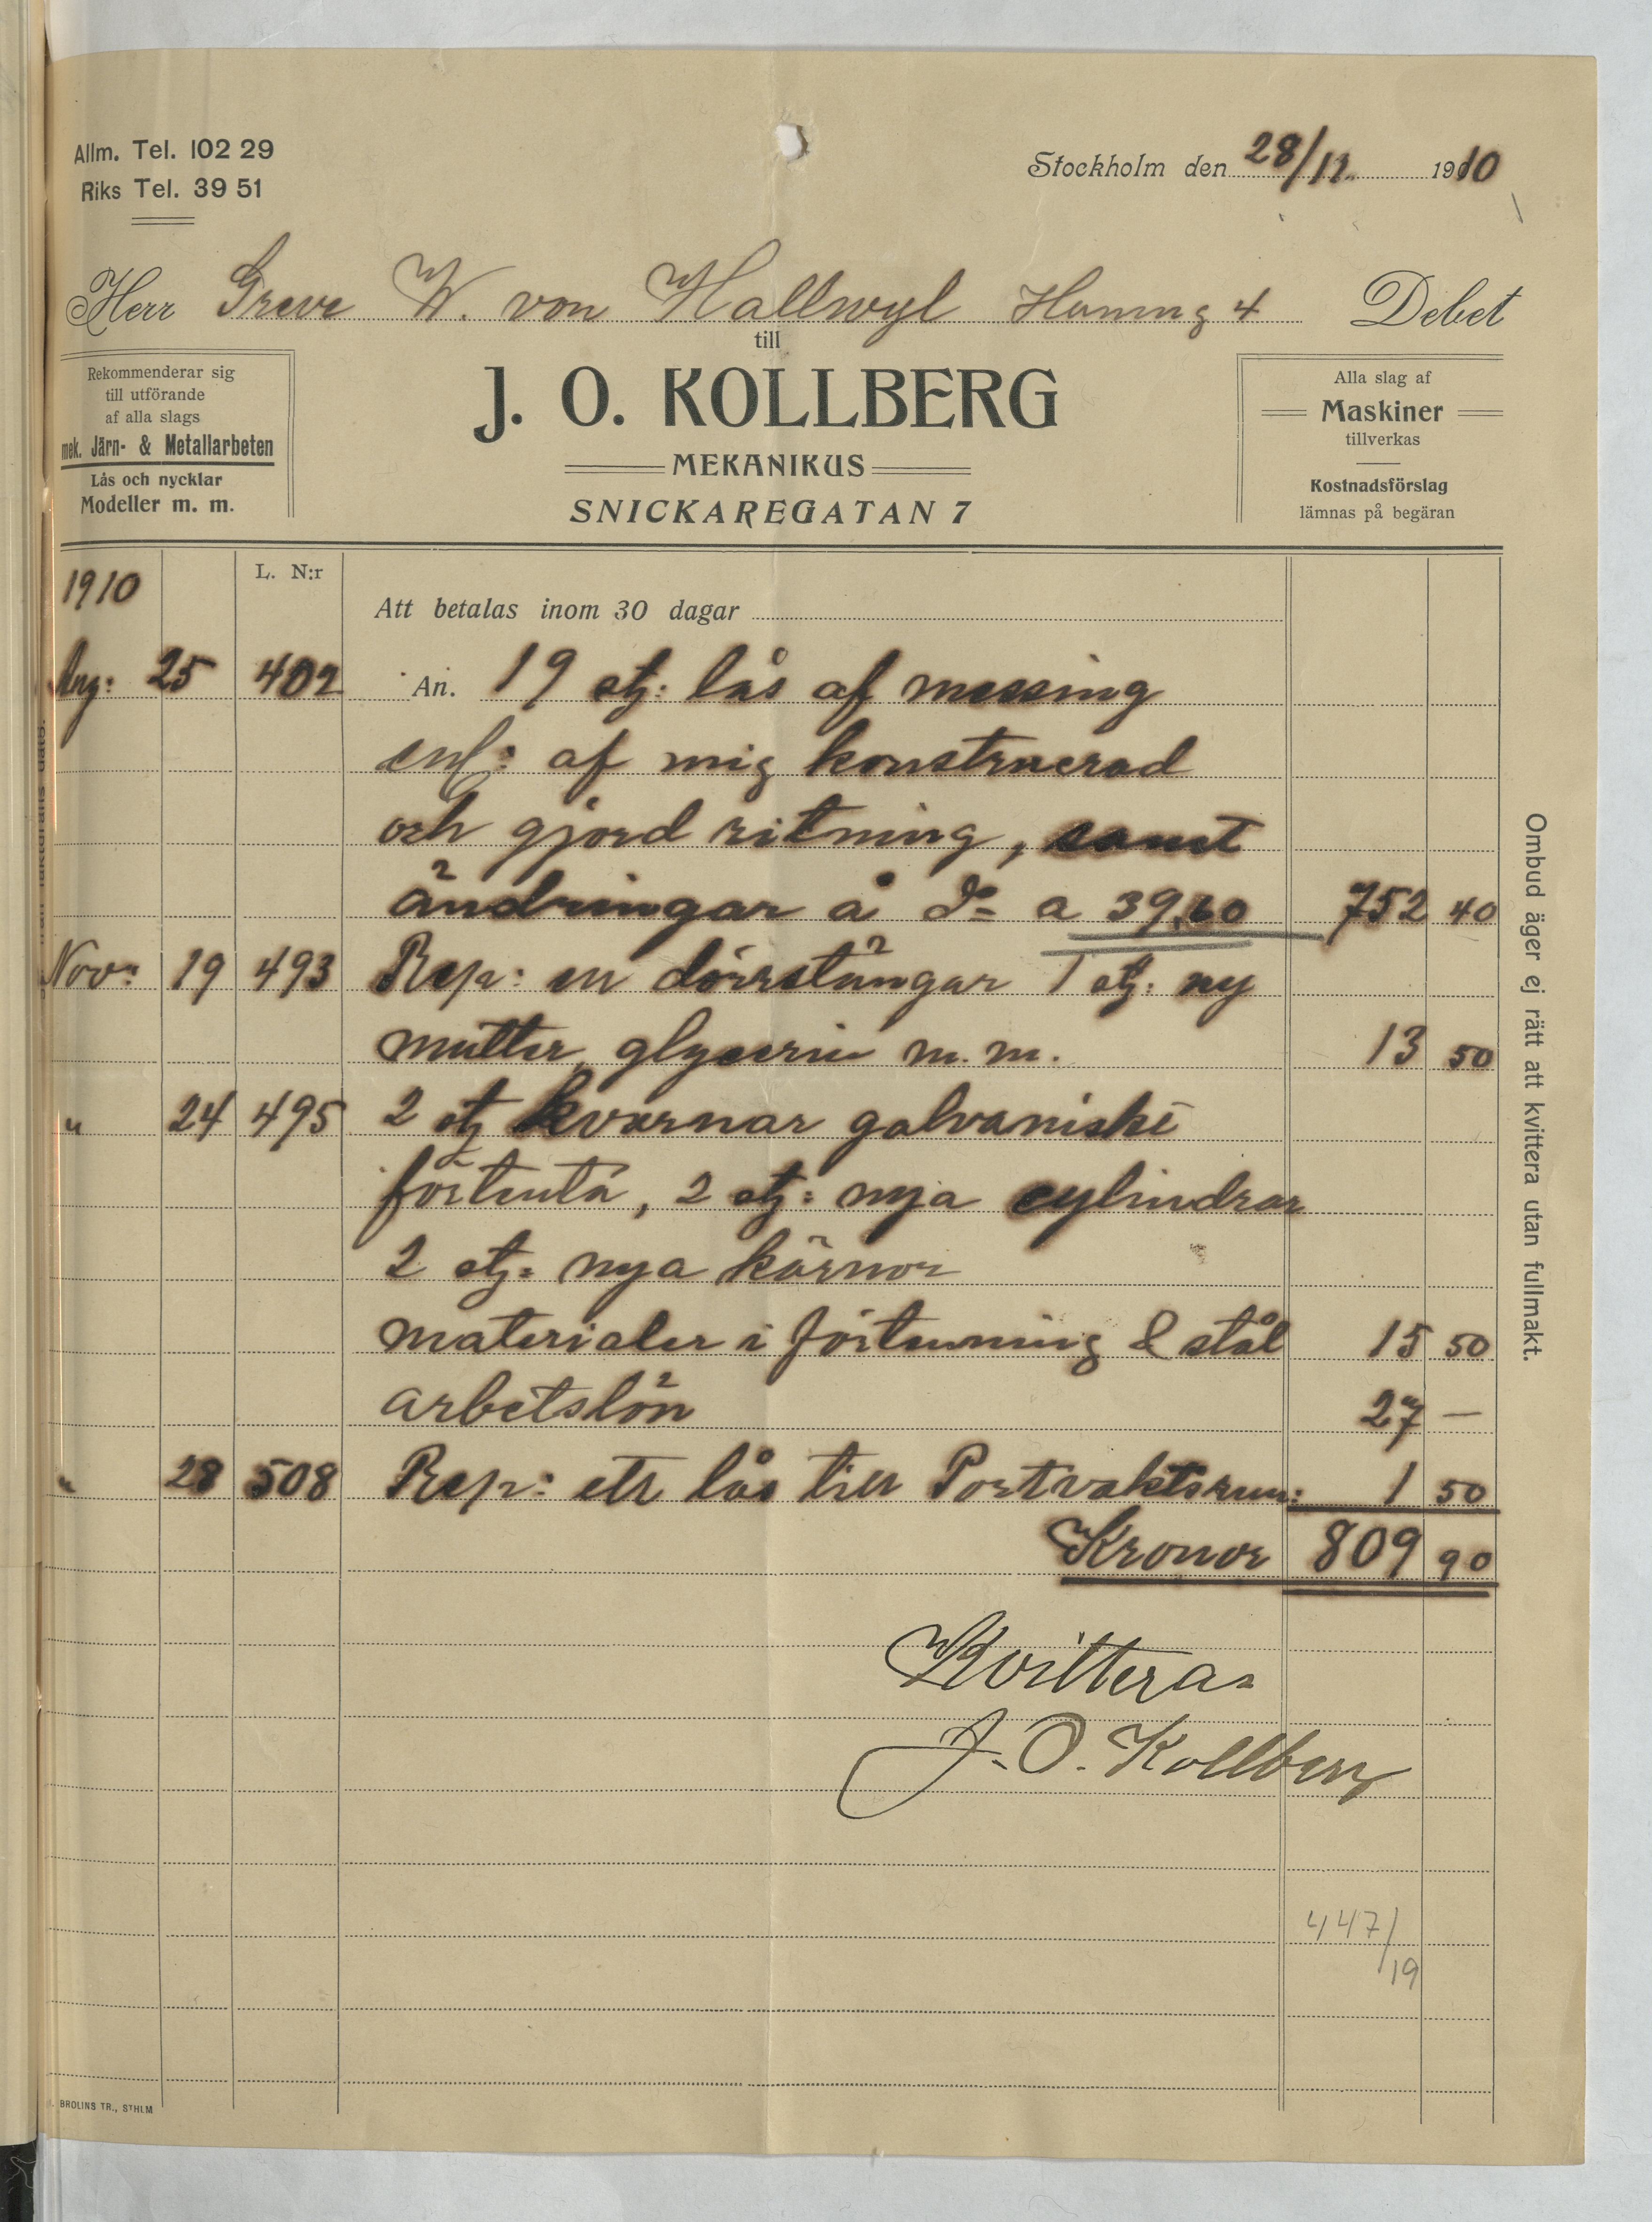 Allm. Tel. 102 29
Riks Tel. 39 51
Stockholm den 28/11 1910
Herr Greve W. von Hallwyl Hamng 4 Debet
till
J. O. KOLLBERG
MEKANIKUS
SNICKAREGATAN 7
Rekommenderar sig
till utförande
af alla slags
mek. Järn- & Metallarbeten
Lås och nycklar
Modeller m. m.
Alla slag af
Maskiner
tillverkas
Kostnadsförslag
lämnas på begäran
1910 L. N:r
Att betalas inom 30 dagar
Aug: 25 402 An. 19 st: lås af messing
enl: af mig konstruerad
och gjord ritning, samt
ändringar å do a 39,60 752 40
Nov: 19 493 Rep: en dörrstängar 1 st: ny
mutter, glycerin m.m. 13 50
" 24 495 2 st kvarnar galvaniskt
förtenta, 2 st: nya cylindrar
2 st: nya kärnor
materialer i förtenning & stål 15 50
arbetslön 27 —
" 28 508 Rep: ett lås till Portvaktsrum: 1 50
Kronor 809 90
Kvitteras
J. O. Kollberg
447/19
Ombud äger ej rätt att kvittera utan fullmakt.
BROLINS TR., STHLM